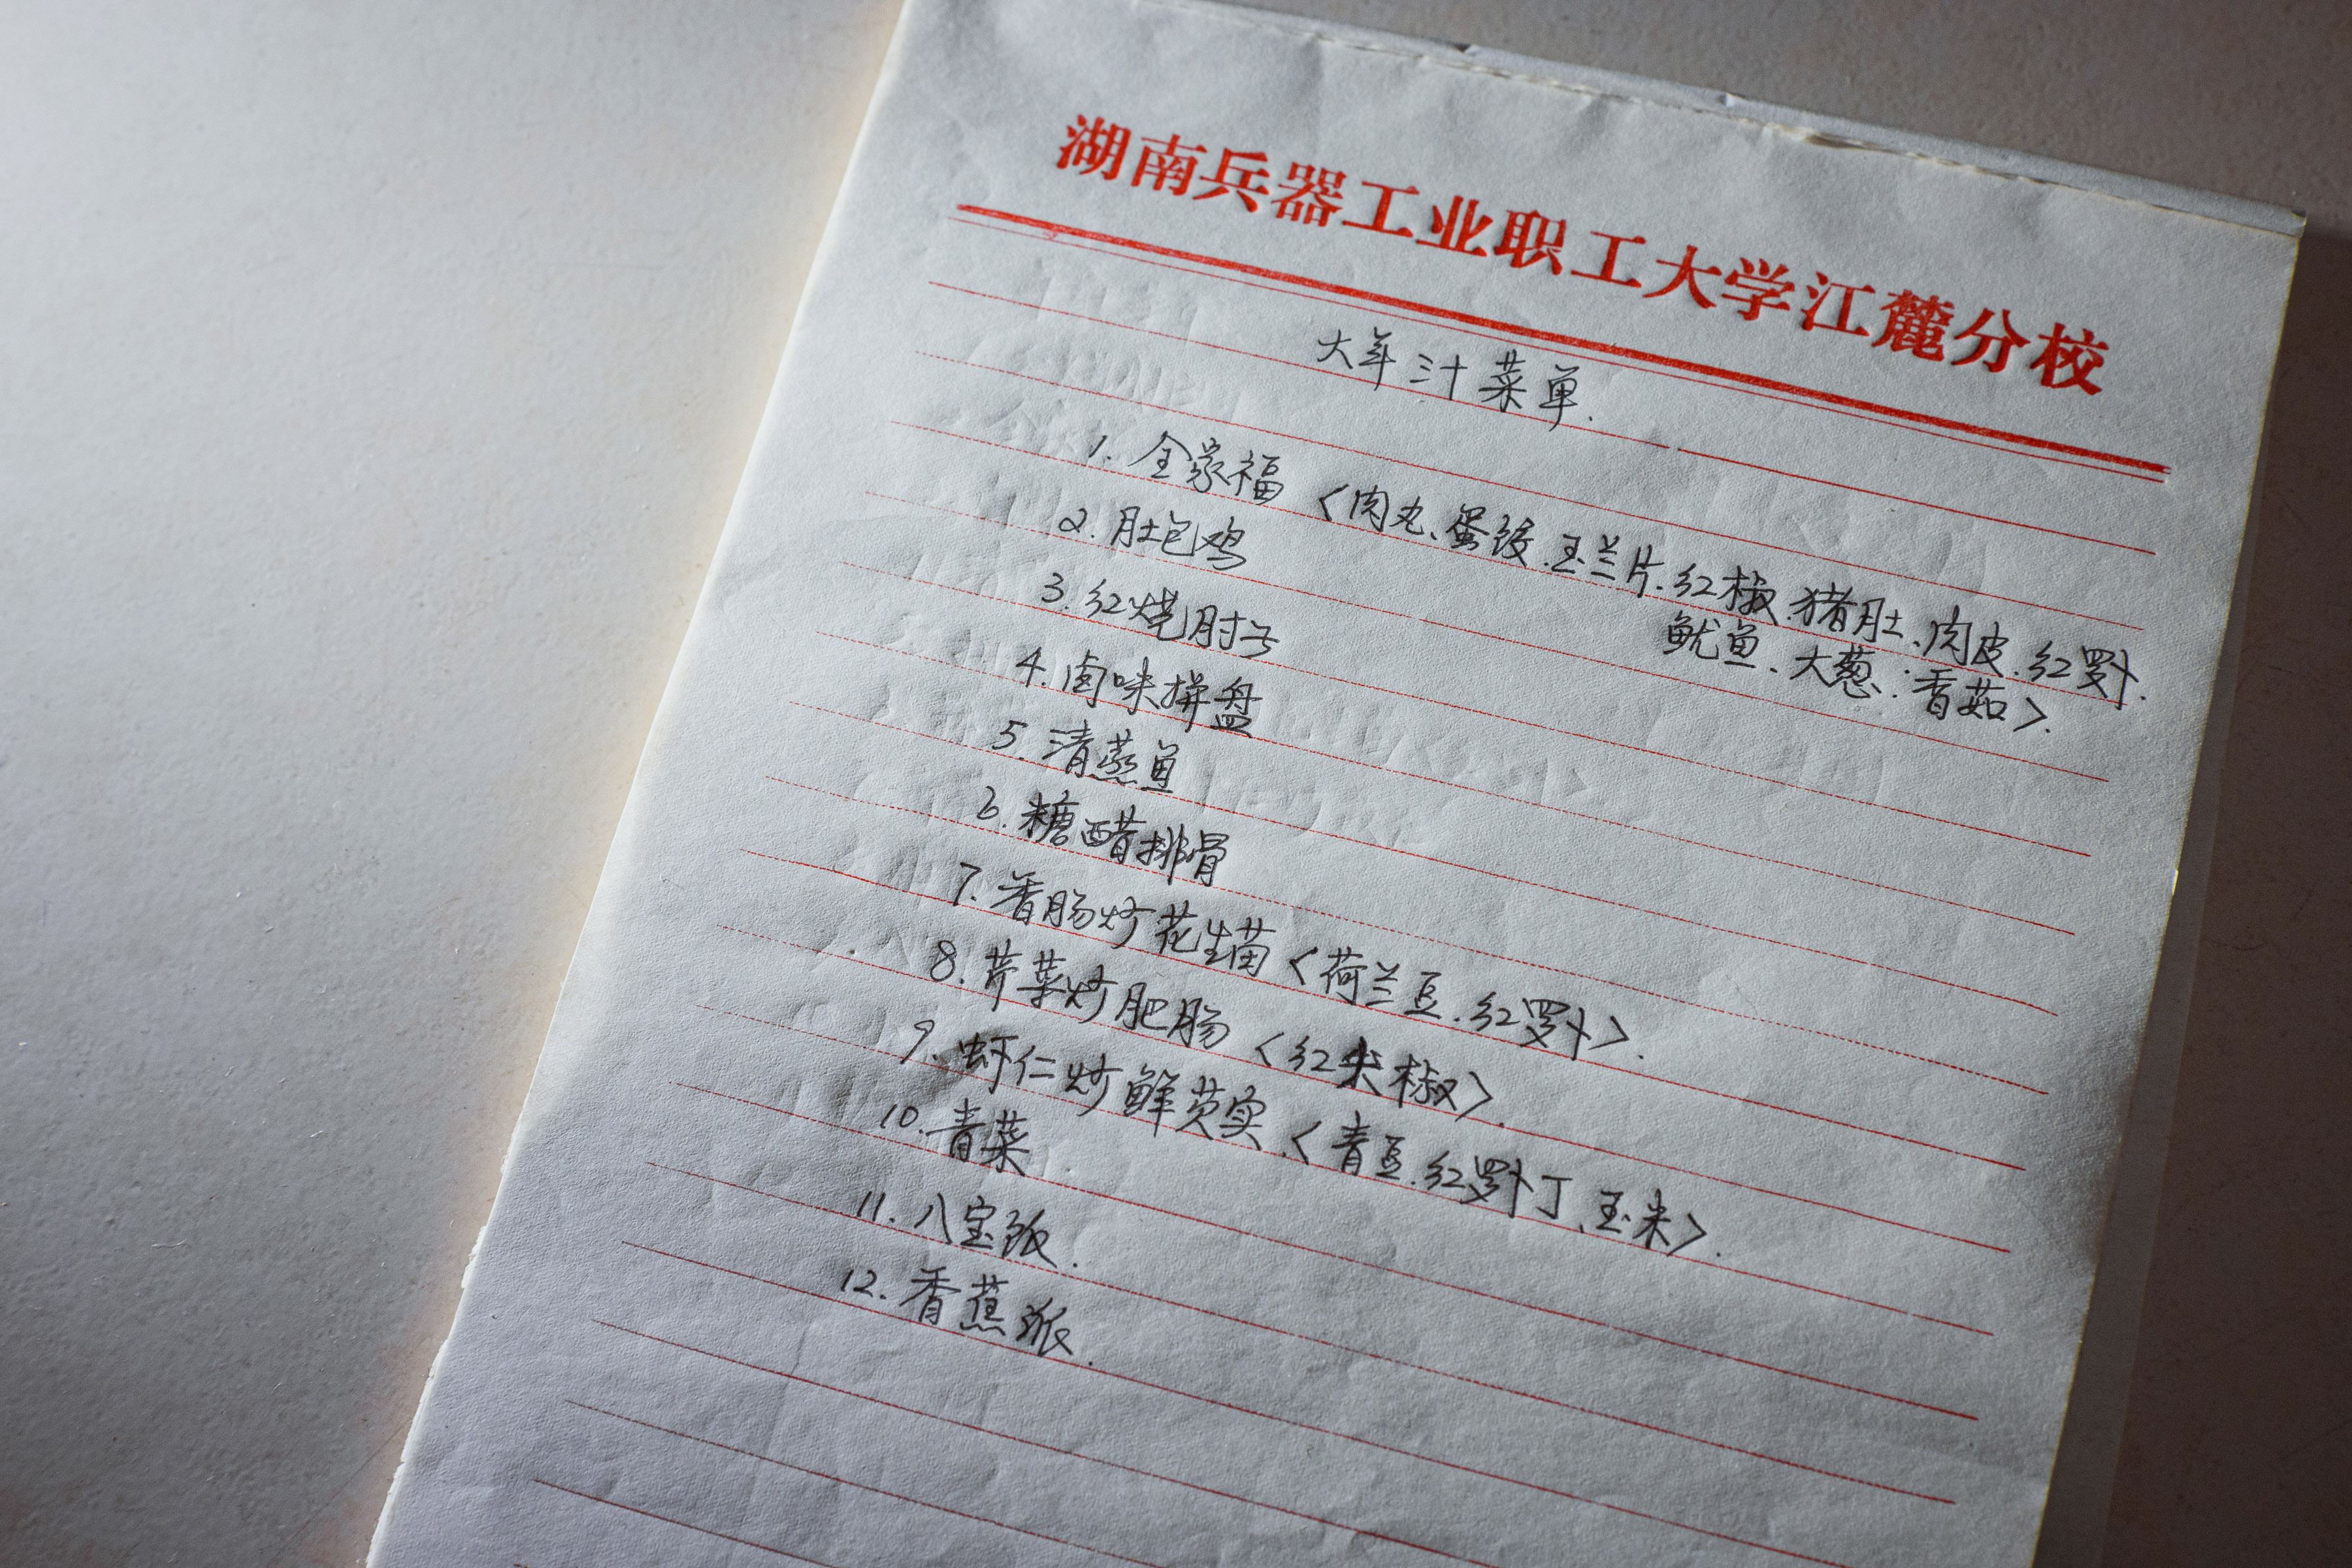 湖南兵器工业职工大学江麓分校
大年三十菜单.
1. 全家福〈肉丸、蛋饺.玉兰片.红椒.猪肚、肉皮.红罗卜.
鱿鱼、大葱.香茹〉.
2. 肚包鸡
3. 红烧肘子
4. 卤味拼盘
5. 清蒸鱼
6. 糖醋排骨
7. 香肠炒花生苗〈荷兰豆.红罗卜〉.
8. 芹菜炒肥肠〈红尖椒〉.
9. 虾仁炒鲜芡实.〈青豆.红罗卜丁、玉米〉.
10. 青菜
11. 八宝饭.
12. 香蕉派.